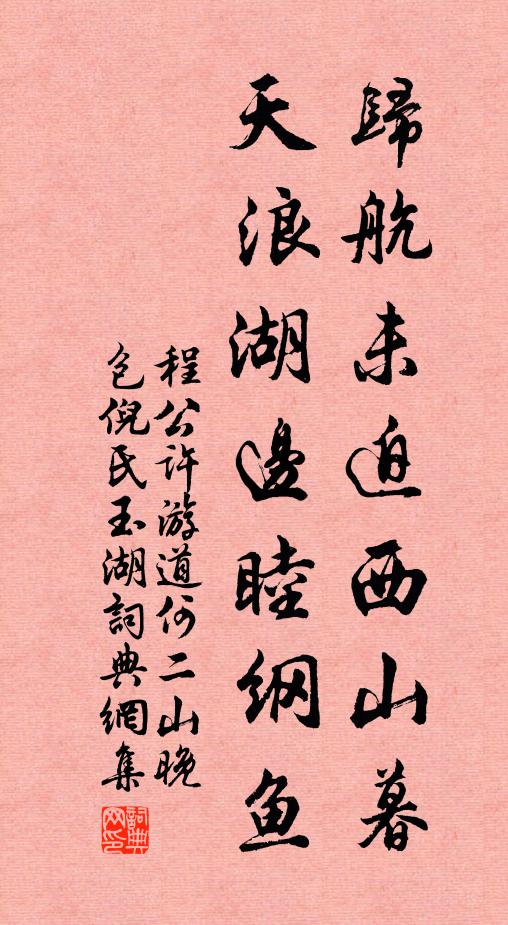 歸航未迫西山暮
天浪湖邊睦纲鱼
程公许游道何二山晚
色倪氏玉湖詞典網集
詞典网印